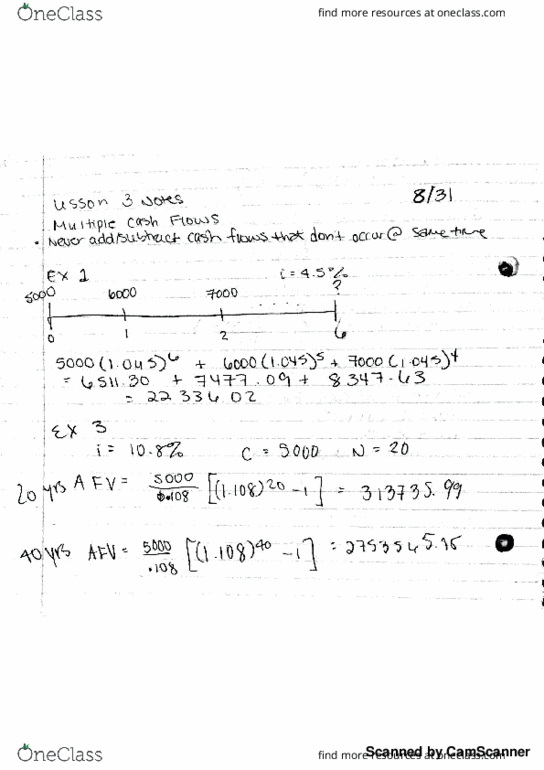 OneClass
find more resources at oneclass.com
Lesson 3 Notes 8/31
Multiple Cash Flows
• Never add/subtract cash flows that don't occur @ same time
Ex 1 i = 4.5%
5000 6000 7000 ..... ?
0 1 2 6
5000(1.045)^6 + 6000(1.045)^5 + 7000(1.045)^4
= 6511.30 + 7477.09 + 8347.63
= 22336.02
Ex 3
i = 10.8% C = 5000 N = 20
20 yrs AFV = 5000/0.108 [(1.108)^20 - 1] = 313735.99
40 yrs AFV = 5000/.108 [(1.108)^40 - 1] = 2753545
OneClass
find more resources at oneclass.com
Scanned by CamScanner